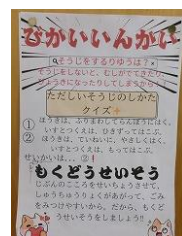 びかいいんかい
そうじをするりゆうは?
そうじをしないと、むしがでてきたり、
びょうきになったりしてしまうから!!
ただしいそうじのしかた
クイズ
① ほうきは、ふりまわしてらんぼうにはく。
いすとつくえは、ひきずってはこぶ。
② ほうきは、ていねいに、やさしくはく。
いすとつくえは、もってはこぶ。
せいかいは... ②!
もくどうせいそう
じぶんのこころをせいちょうさせて、
しゅうちゅうりょくがあがって、ごみ
をみつけやすいから。だから、もくど
うせいそうをしましょう!!